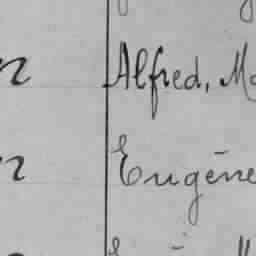 n Alfred,
n Eugène